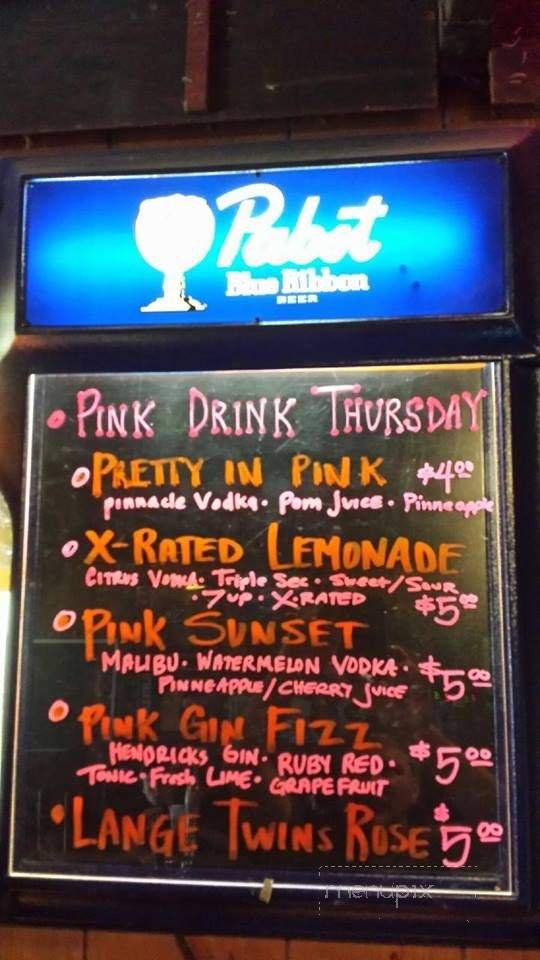 Pabst
Blue Ribbon
BEER
• PINK DRINK THURSDAY
PRETTY IN PINK $4.00
pinnacle Vodka • Pom Juice • Pinneapple
X-RATED LEMONADE
CITRUS VODKA • Triple Sec • Sweet/Sour
• 7UP • X-RATED $5.00
PINK SUNSET
MALIBU • WATERMELON VODKA • $5.00
PINNEAPPLE/CHERRY JUICE
PINK GIN FIZZ
HENDRICKS GIN • RUBY RED • $5.00
TONIC • Fresh LIME • GRAPEFRUIT
• LANGE TWINS ROSE $5.00
menupix